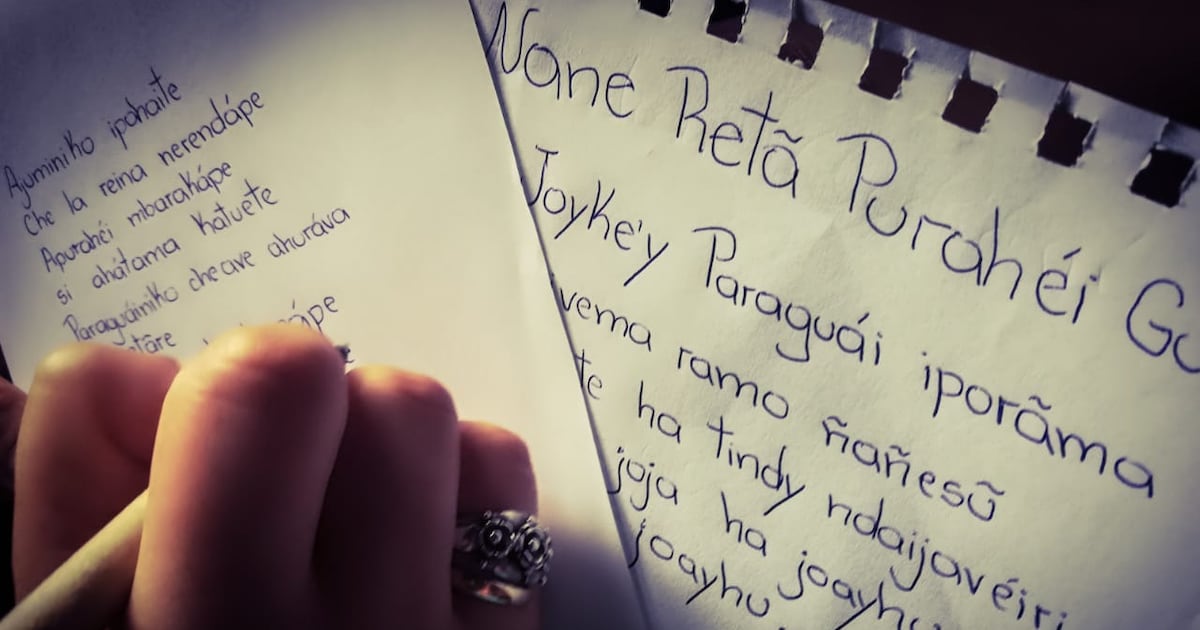 Ajuminiko ipahaite
Che la reina nerendápe
Apurahéi mbarakápe
si ahátama katuete
Paraguáiniko cheave ahuráva
Ñane Retã Purahéi
Joyke'y Paraguái iporãma
vema ramo ñañesũ
te ha tindy ndaijavéiri
joja ha joayhu
joayhu